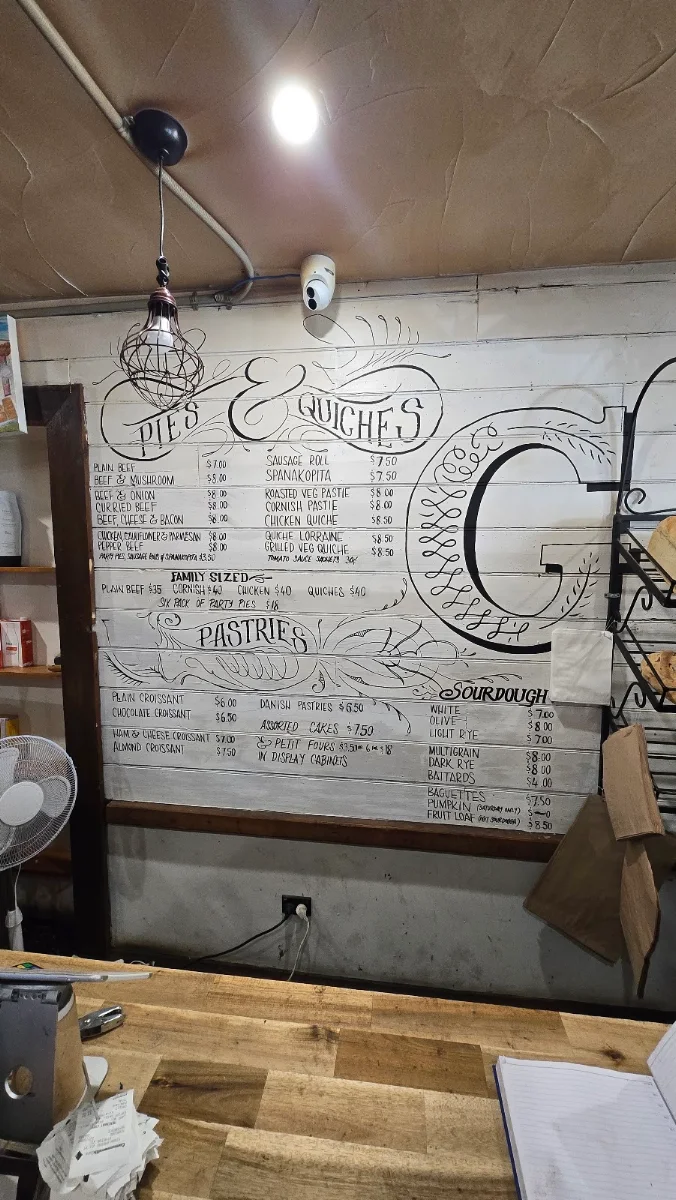 PIES & QUICHES
PLAIN BEEF $7.00
BEEF & MUSHROOM $8.00
BEEF & ONION $8.00
CURRIED BEEF $8.00
BEEF, CHEESE & BACON $8.00
CHICKEN, CAULIFLOWER & PARMESAN $8.00
PEPPER BEEF $8.00
PARTY PIES, SAUSAGE ROLLS & SPANAKOPITA $3.50
SAUSAGE ROLL $7.50
SPANAKOPITA $7.50
ROASTED VEG PASTIE $8.00
CORNISH PASTIE $8.00
CHICKEN QUICHE $8.50
QUICHE LORRAINE $8.50
GRILLED VEG QUICHE $8.50
TOMATO SAUCE SACHETS 30¢
G
FAMILY SIZED
PLAIN BEEF $35 CORNISH $40 CHICKEN $40 QUICHES $40
SIX PACK OF PARTY PIES $18
PASTRIES
PLAIN CROISSANT $6.00
CHOCOLATE CROISSANT $6.50
HAM & CHEESE CROISSANT $7.00
ALMOND CROISSANT $7.50
DANISH PASTRIES $6.50
ASSORTED CAKES $7.50
& PETIT FOURS $3.50 6 FOR $18
IN DISPLAY CABINETS
SOURDOUGH
WHITE $7.00
OLIVE $8.00
LIGHT RYE $7.00
MULTIGRAIN $8.00
DARK RYE $8.00
BATTARDS $4.00
BAGUETTES $7.50
PUMPKIN (SATURDAY ONLY)
FRUIT LOAF (NOT SOURDOUGH) $8.50